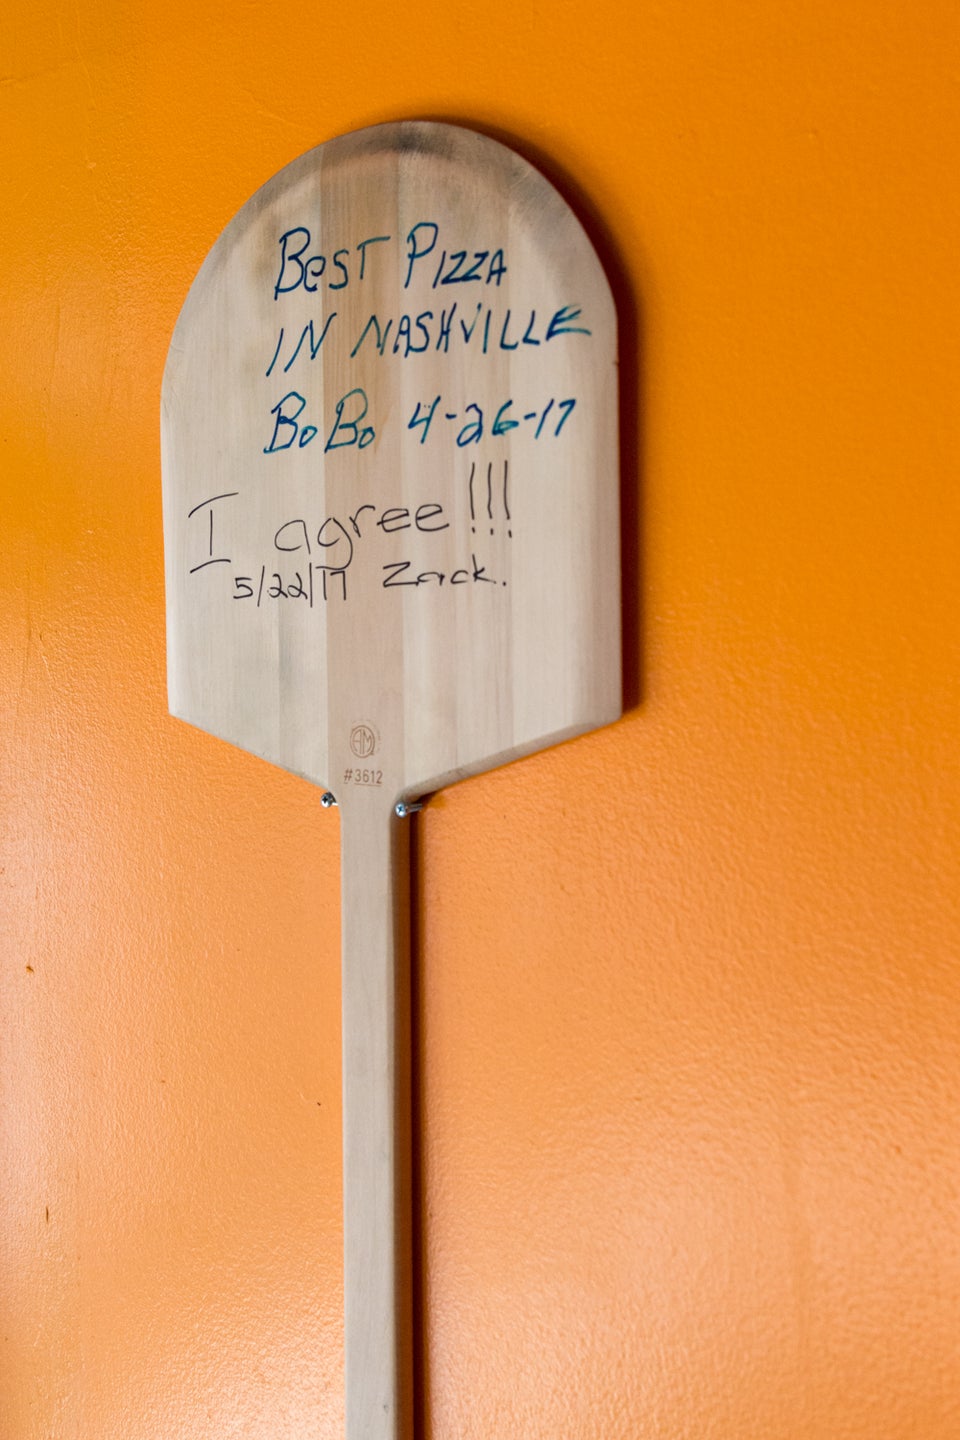 BeST PIZZA
IN NASHVILLE
BoBo 4-26-17
I agree!!!
5/22/17 Zack.
AM
#3612